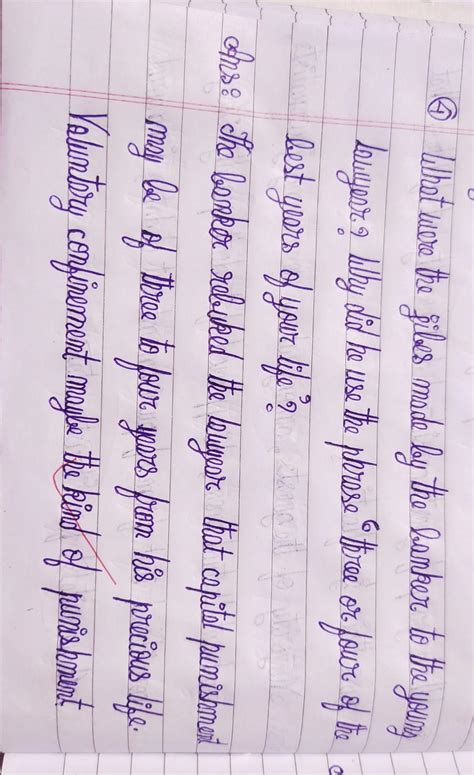 ④ What were the gibes made by the banker to the young
lawyear? Why did he use the phrase "three or four of the
best years of your life"?
Ans: The banker rebuked the lawyear that capital punishment
may be of three to four years from his precious life.
Voluntary confinement maybe the kind of punishment.